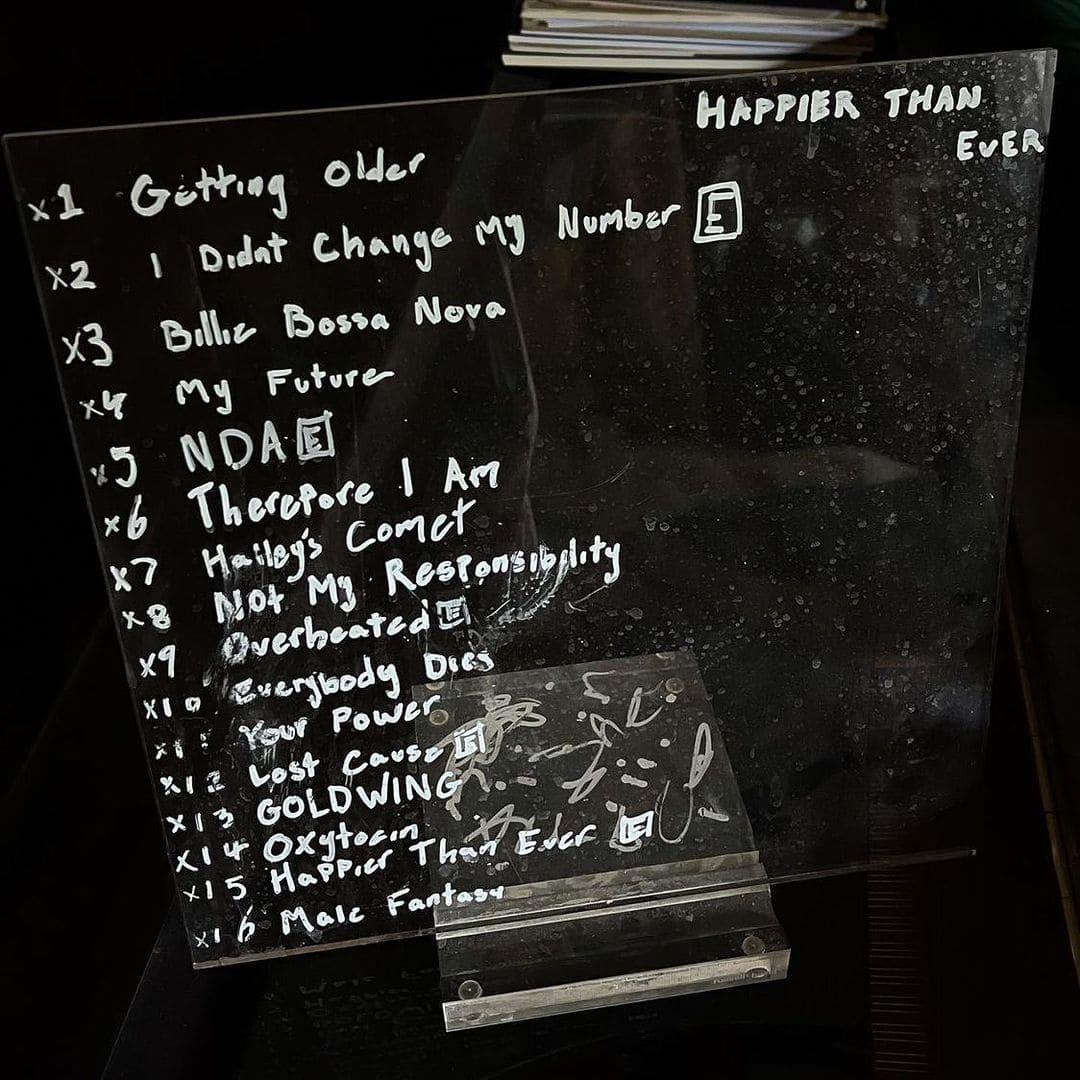 HAPPIER THAN
EVER
x1 Getting Older
x2 I Didnt Change My Number E
x3 Billie Bossa Nova
x4 My Future
x5 NDA E
x6 Therefore I Am
x7 Hailey's Comet
x8 Not My Responsibility
x9 Overheated E
x10 Everybody Dies
x11 Your Power
x12 Lost Cause E
x13 GOLDWING
x14 Oxytocin
x15 Happier Than Ever E
x16 Male Fantasy